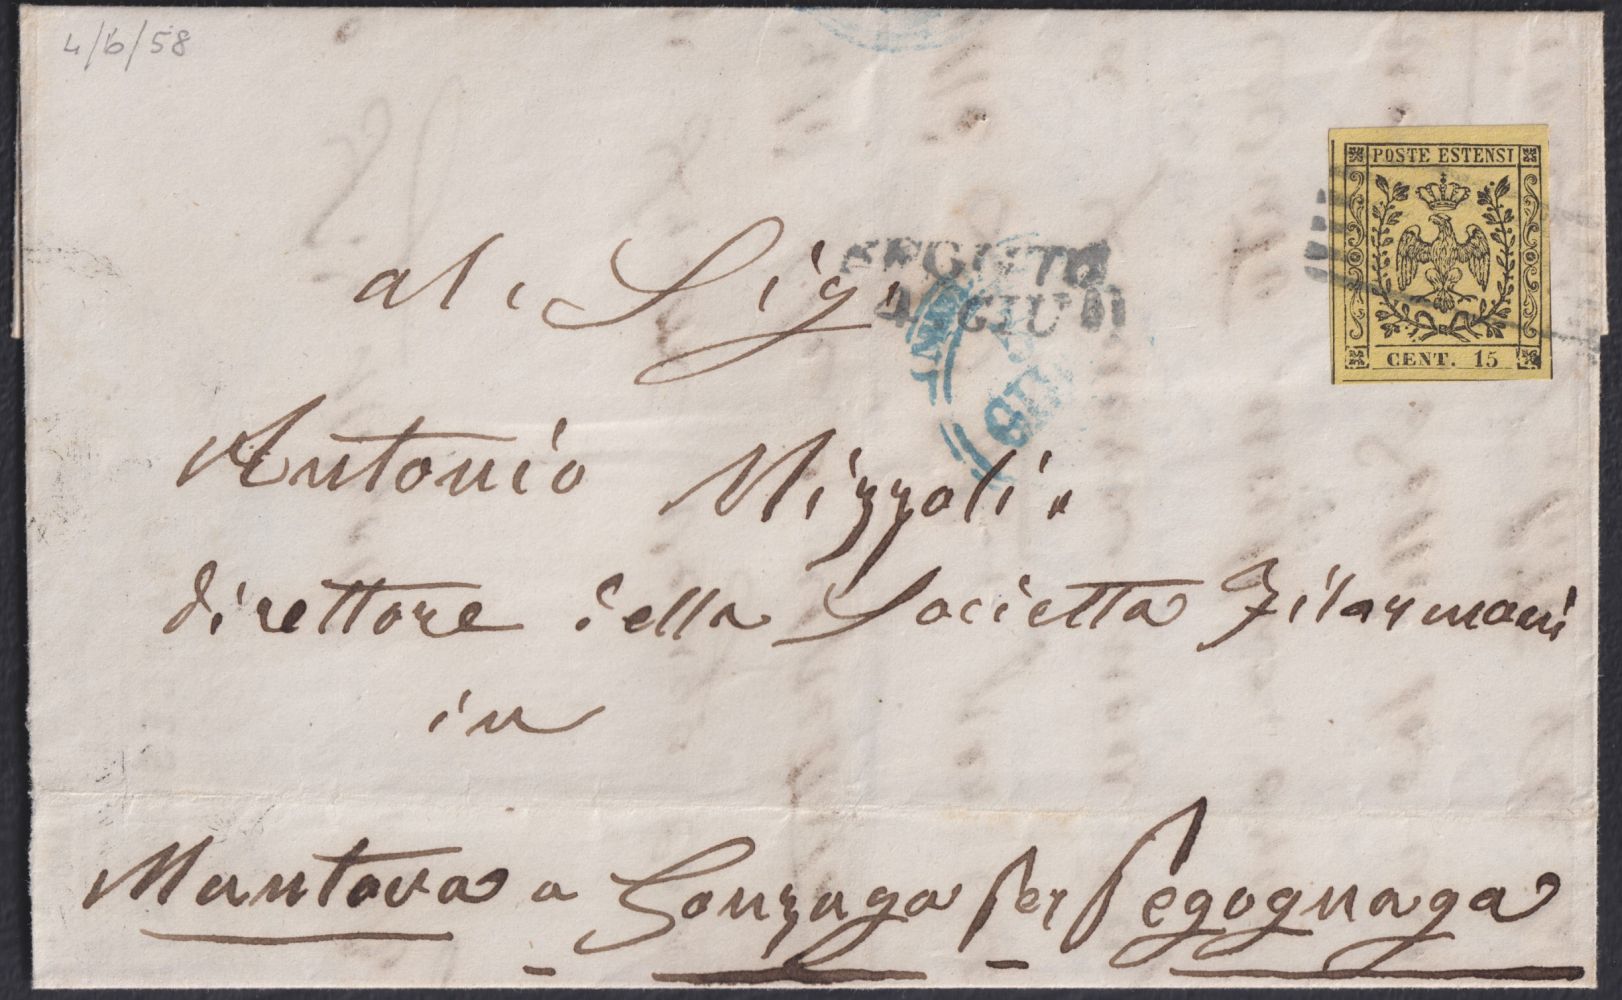 4/6/58
POSTE ESTENSI
CENT. 15
al. Sig.
GIU
GIU
Antonio Mizzoli.
direttore della Societta Filarmoni
in
Mantova a Gonzaga per Pegognaga